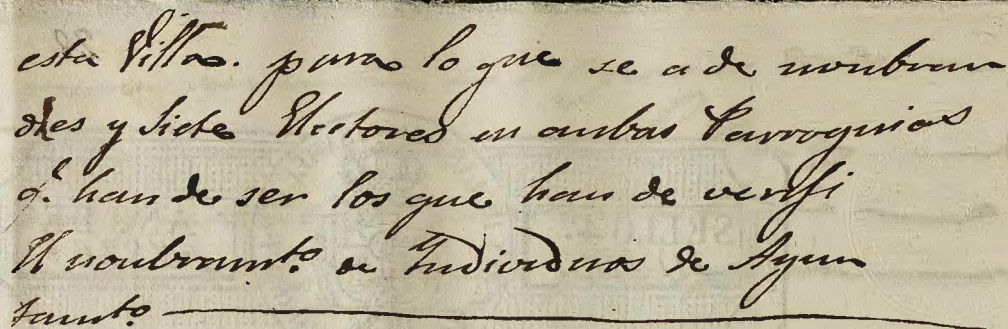 esta Villa. para lo que se a de nonbrar
dies y Siete Electores en anbas Parroquias
q.e han de ser los que han de verifi
El nonbramto. de Individuos de Ayun
tamto.